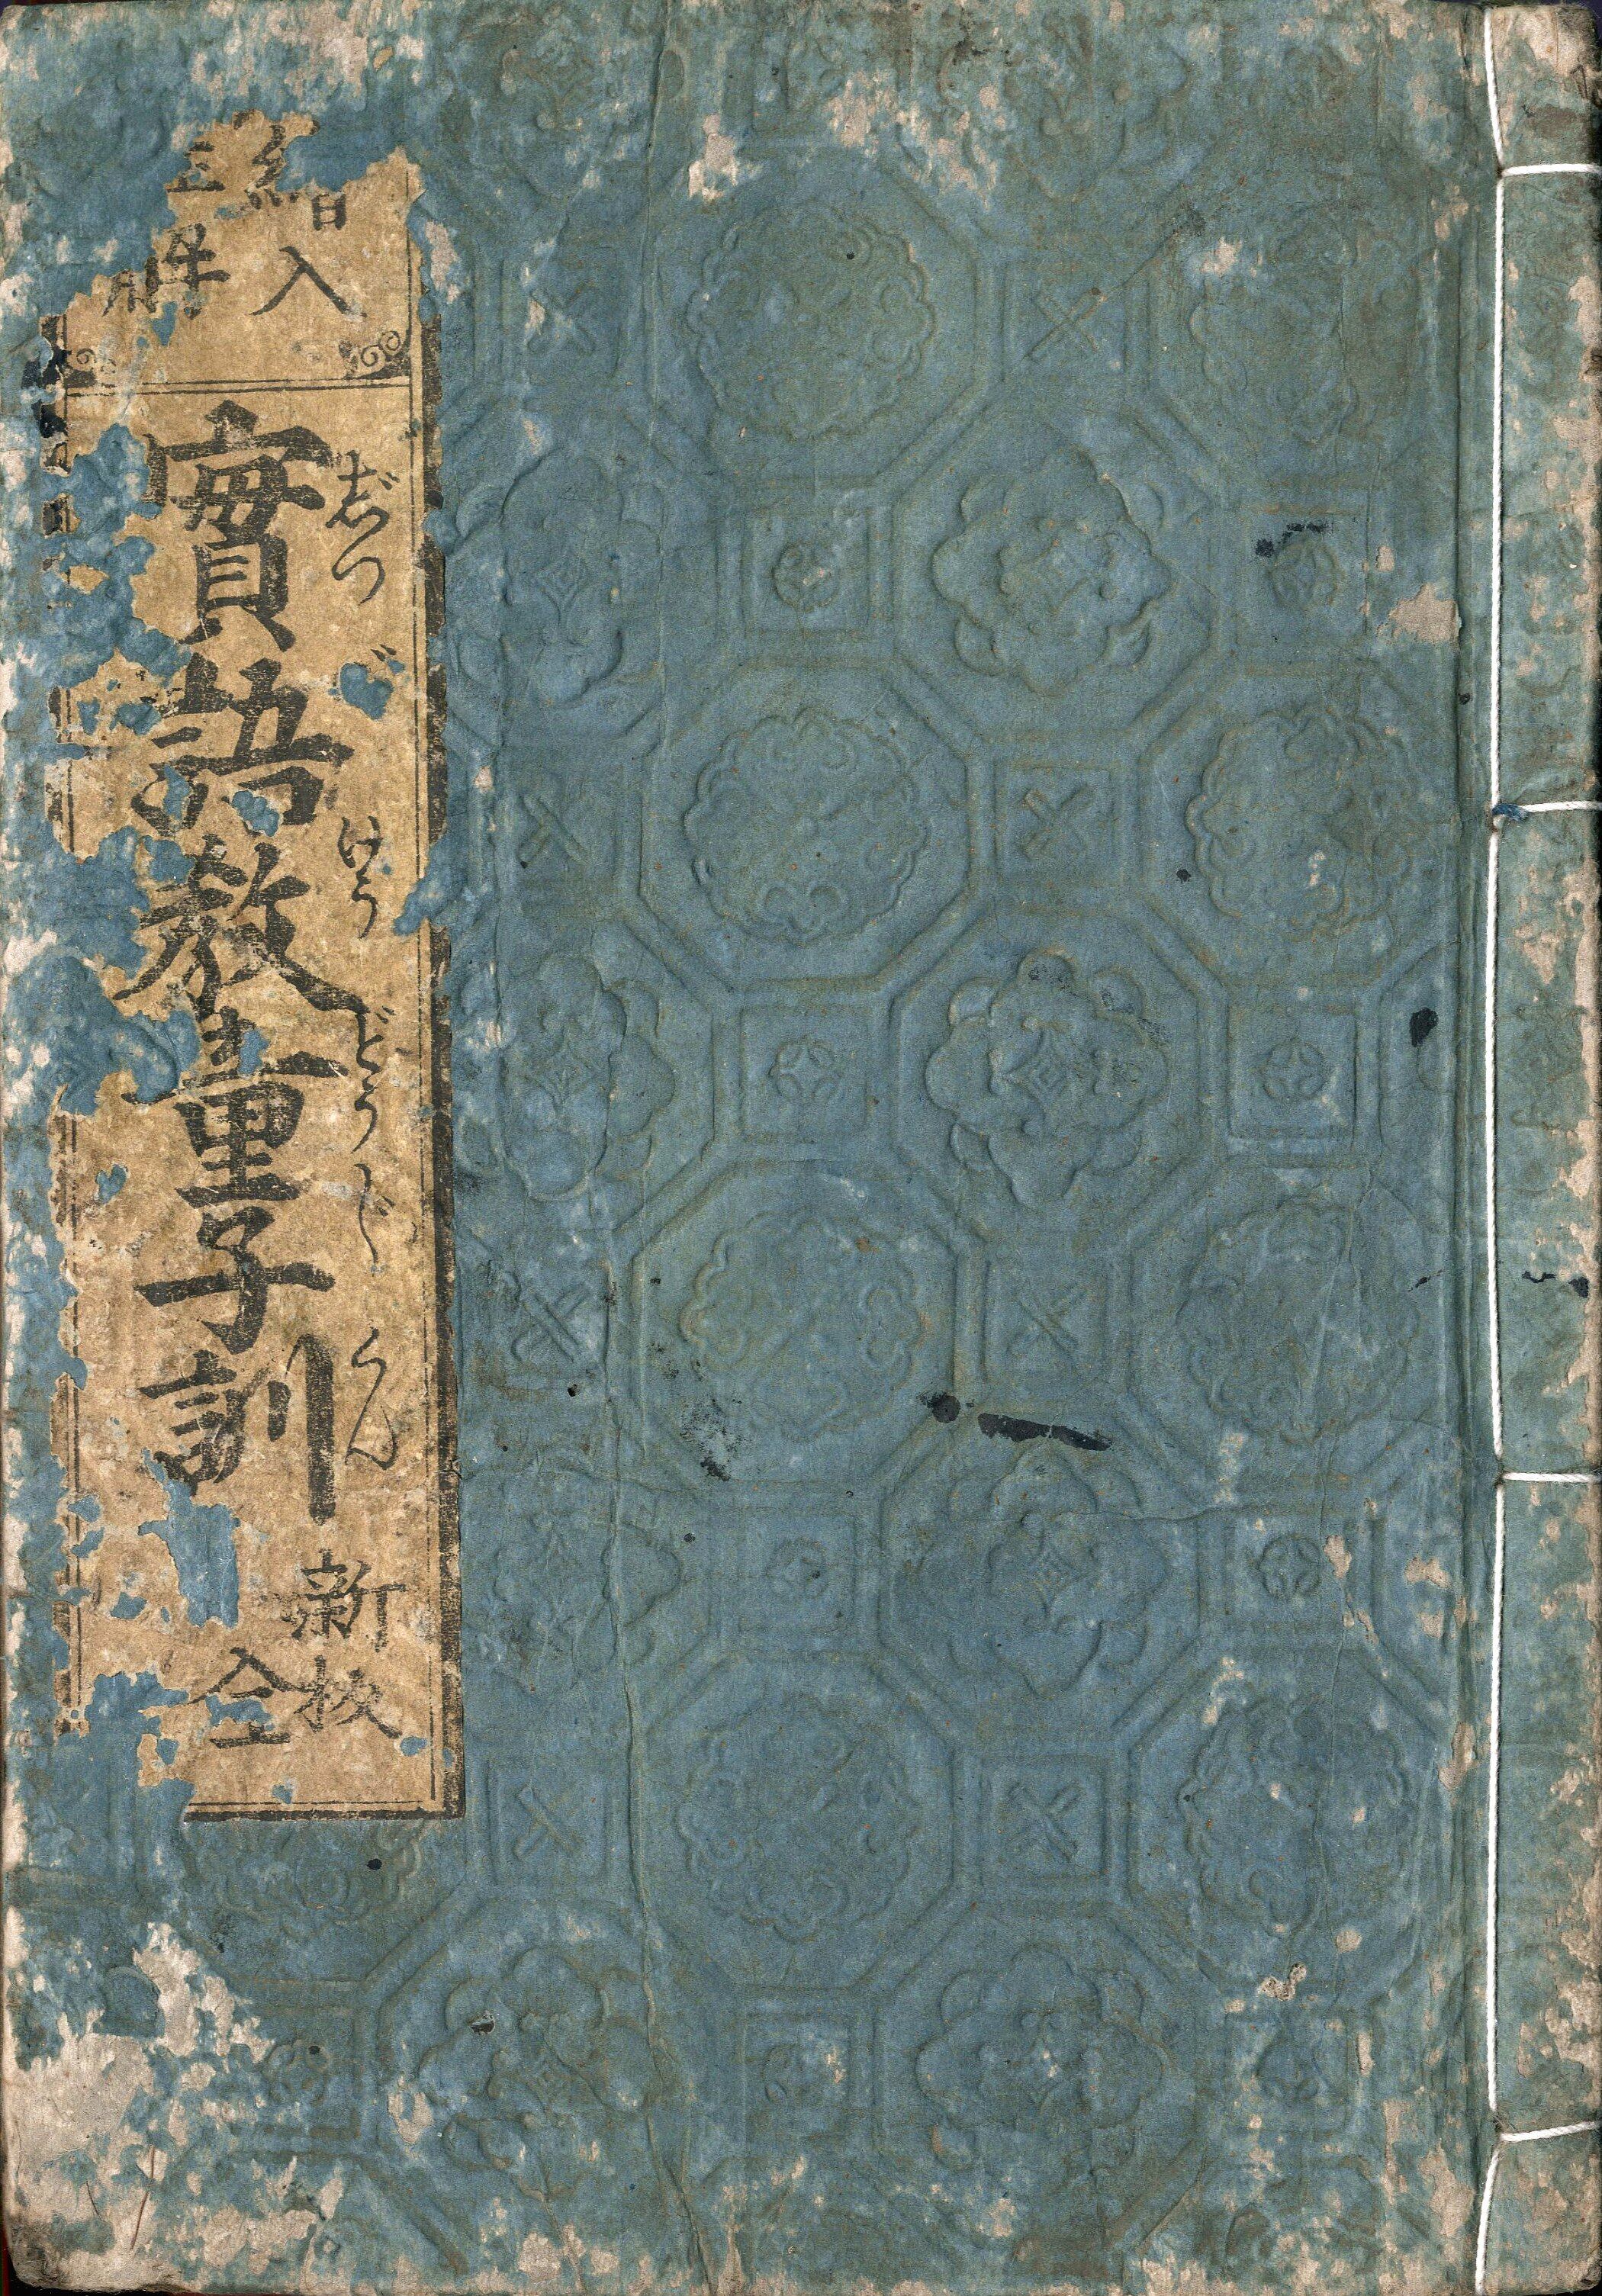 繪入
解
じつ けう どうじ くん
實語教童子訓
新板
全